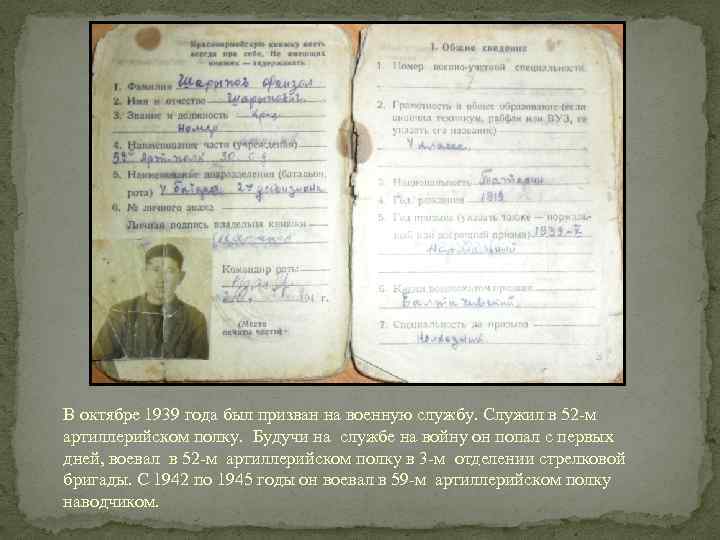 Красноармейскую книжку иметь
всегда при себе. Не имеющих
книжек — задерживать.
1. Фамилия Шарыпов
2. Имя и отчество Шарыпович
3. Звание и должность
Номер
4. Наименование части (учреждения)
5. Наименование подразделения (батальон,
рота) 2го дивизиона
6. № личного знака
Личная подпись владельца книжки
Командир роты:
194 г.
(Место
печати части)
I. Общие сведения
1. Номер военно-учетной специальности:
2. Грамотность и общее образование (если
окончил техникум, рабфак или ВУЗ, то
указать его название)
V класс
3. Национальность Татарин
4. Год рождения 1919
5. Год призыва (указать также — нормаль-
ный или досрочный призыв) 1939-X
Нормальный
6. Каким военкоматом призван
Балтачевский
7. Специальность до призыва
Колхозник
В октябре 1939 года был призван на военную службу. Служил в 52-м
артиллерийском полку. Будучи на службе на войну он попал с первых
дней, воевал в 52-м артиллерийском полку в 3-м отделении стрелковой
бригады. С 1942 по 1945 годы он воевал в 59-м артиллерийском полку
наводчиком.